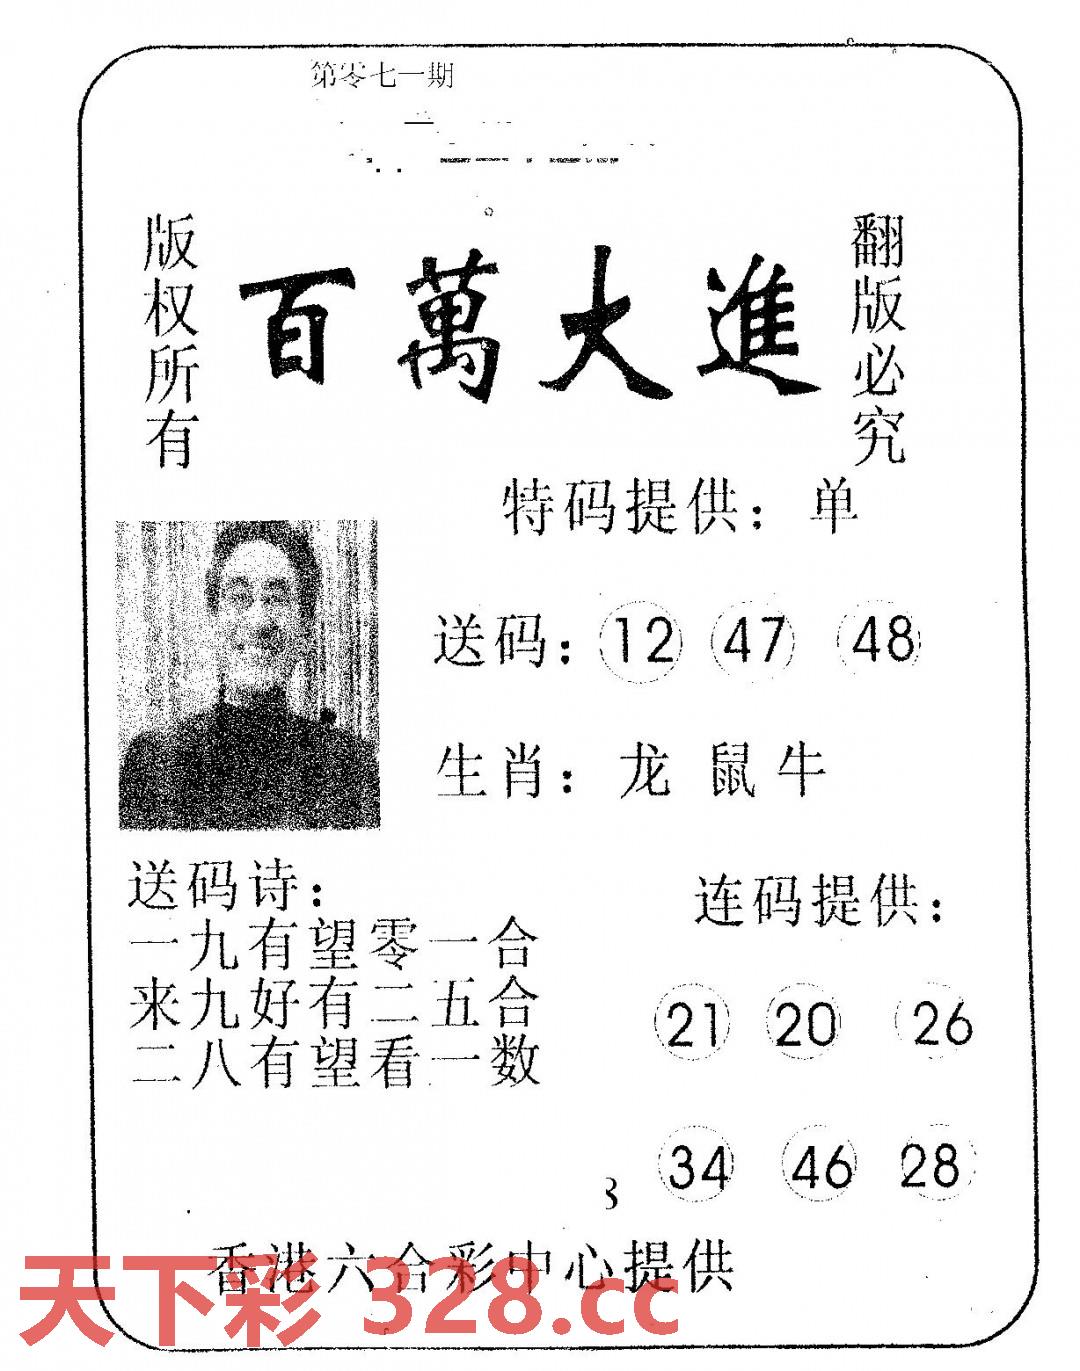 第零七一期
版权所有
百萬大進
翻版必究
特码提供：单
送码：12 47 48
生肖：龙 鼠 牛
送码诗：
一九有望零一合
来九好有二五合
二八有望看一数
连码提供：
21 20 26
34 46 28
香港六合彩中心提供
天下彩 328.cc